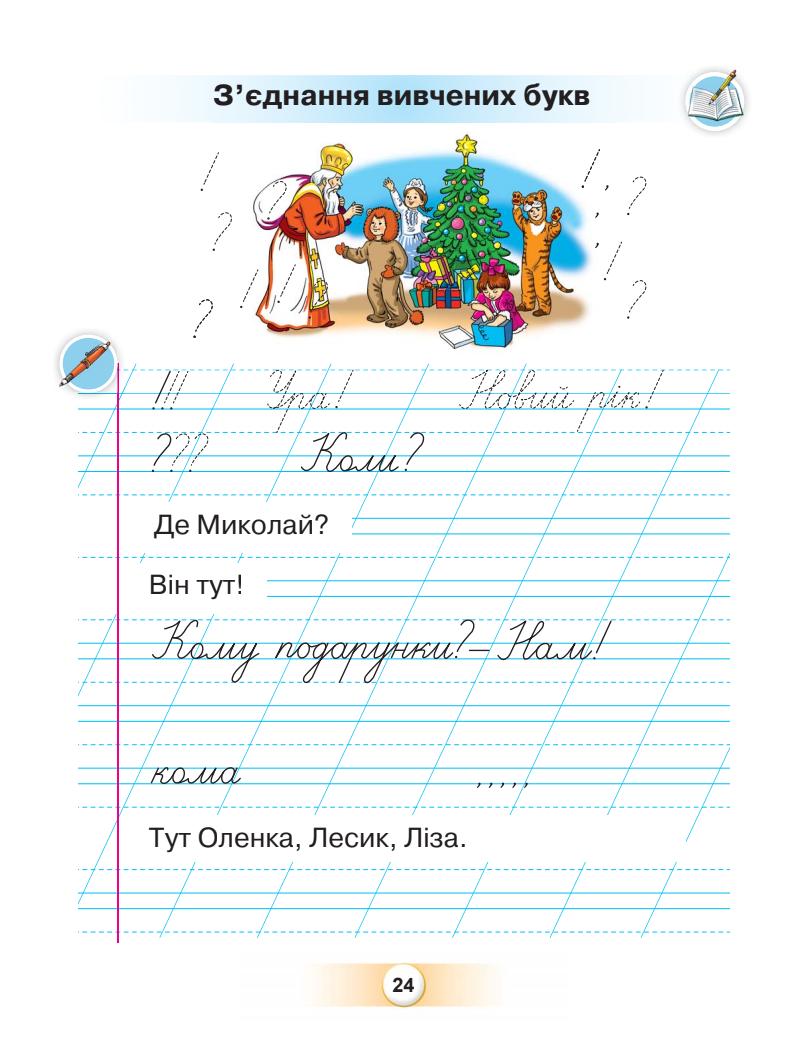 З’єднання вивчених букв
! ! , ?
? , , !
! ! ! ?
?
!!! Ура! Новий рік!
??? Коли?
Де Миколай?
Він тут!
Кому подарунки? – Нам!
кома , , , , ,
Тут Оленка, Лесик, Ліза.
24